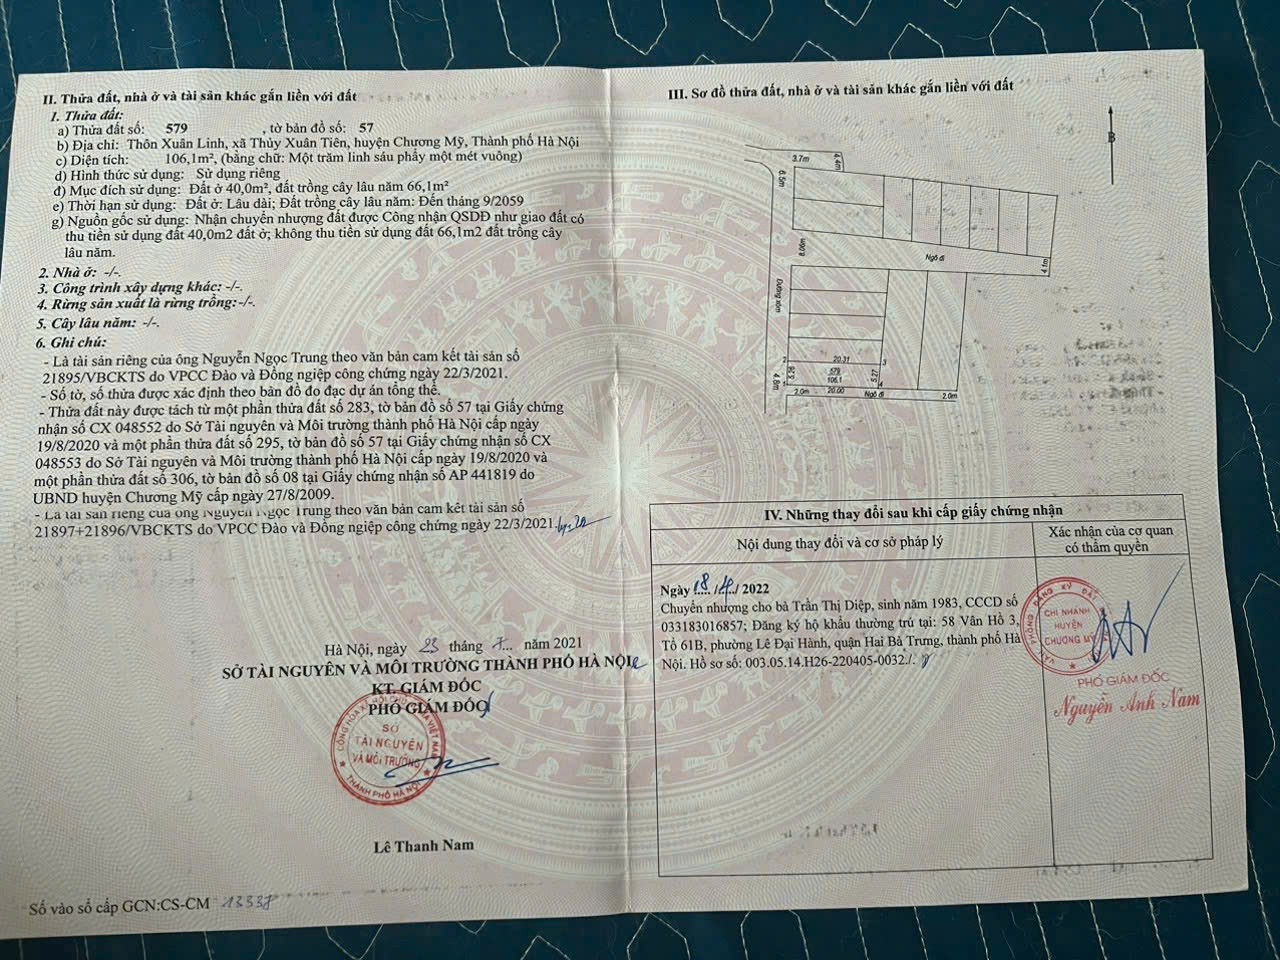 II. Thửa đất, nhà ở và tài sản khác gắn liền với đất
1. Thửa đất:
a) Thửa đất số: 579 , tờ bản đồ số: 57
b) Địa chỉ: Thôn Xuân Linh, xã Thủy Xuân Tiên, huyện Chương Mỹ, Thành phố Hà Nội
c) Diện tích: 106,1m², (bằng chữ: Một trăm linh sáu phẩy một mét vuông)
d) Hình thức sử dụng: Sử dụng riêng
đ) Mục đích sử dụng: Đất ở 40,0m², đất trồng cây lâu năm 66,1m²
e) Thời hạn sử dụng: Đất ở: Lâu dài; Đất trồng cây lâu năm: Đến tháng 9/2059
g) Nguồn gốc sử dụng: Nhận chuyển nhượng đất được Công nhận QSDĐ như giao đất có
thu tiền sử dụng đất 40,0m2 đất ở; không thu tiền sử dụng đất 66,1m2 đất trồng cây
lâu năm.
2. Nhà ở: -/-.
3. Công trình xây dựng khác: -/-.
4. Rừng sản xuất là rừng trồng:-/-.
5. Cây lâu năm: -/-.
6. Ghi chú:
- Là tài sản riêng của ông Nguyễn Ngọc Trung theo văn bản cam kết tài sản số
21895/VBCKTS do VPCC Đào và Đồng ngiệp công chứng ngày 22/3/2021.
- Số tờ, số thửa được xác định theo bản đồ đo đạc dự án tổng thể.
- Thửa đất này được tách từ một phần thửa đất số 283, tờ bản đồ số 57 tại Giấy chứng
nhận số CX 048552 do Sở Tài nguyên và Môi trường thành phố Hà Nội cấp ngày
19/8/2020 và một phần thửa đất số 295, tờ bản đồ số 57 tại Giấy chứng nhận số CX
048553 do Sở Tài nguyên và Môi trường thành phố Hà Nội cấp ngày 19/8/2020 và
một phần thửa đất số 306, tờ bản đồ số 08 tại Giấy chứng nhận số AP 441819 do
UBND huyện Chương Mỹ cấp ngày 27/8/2009.
- Là tài sản riêng của ông Nguyễn Ngọc Trung theo văn bản cam kết tài sản số
21897+21896/VBCKTS do VPCC Đào và Đồng ngiệp công chứng ngày 22/3/2021.
Hà Nội, ngày 23 tháng 7... năm 2021
SỞ TÀI NGUYÊN VÀ MÔI TRƯỜNG THÀNH PHỐ HÀ NỘI
KT. GIÁM ĐỐC
PHÓ GIÁM ĐỐC
CỘNG HÒA XÃ HỘI CHỦ NGHĨA VIỆT NAM
SỞ
TÀI NGUYÊN
VÀ MÔI TRƯỜNG
THÀNH PHỐ HÀ NỘI
Lê Thanh Nam
Số vào sổ cấp GCN:CS-CM 13337
III. Sơ đồ thửa đất, nhà ở và tài sản khác gắn liền với đất
B
3.7m
4.4m
6.5m
6.90m
Ngõ đi
4.1m
Đường xóm
2
20.31
3
5.26
579
106.1
5.27
4.8m
1
2.0m
20.00
4
Ngõ đi
2.0m
IV. Những thay đổi sau khi cấp giấy chứng nhận
Nội dung thay đổi và cơ sở pháp lý
Xác nhận của cơ quan
có thẩm quyền
Ngày 18.../4.../ 2022
Chuyển nhượng cho bà Trần Thị Diệp, sinh năm 1983, CCCD số
033183016857; Đăng ký hộ khẩu thường trú tại: 58 Vân Hồ 3,
Tổ 61B, phường Lê Đại Hành, quận Hai Bà Trưng, thành phố Hà
Nội. Hồ sơ số: 003.05.14.H26-220405-0032./.
VĂN PHÒNG ĐĂNG KÝ ĐẤT
CHI NHÁNH
HUYỆN
CHƯƠNG MỸ
PHÓ GIÁM ĐỐC
Nguyễn Anh Nam